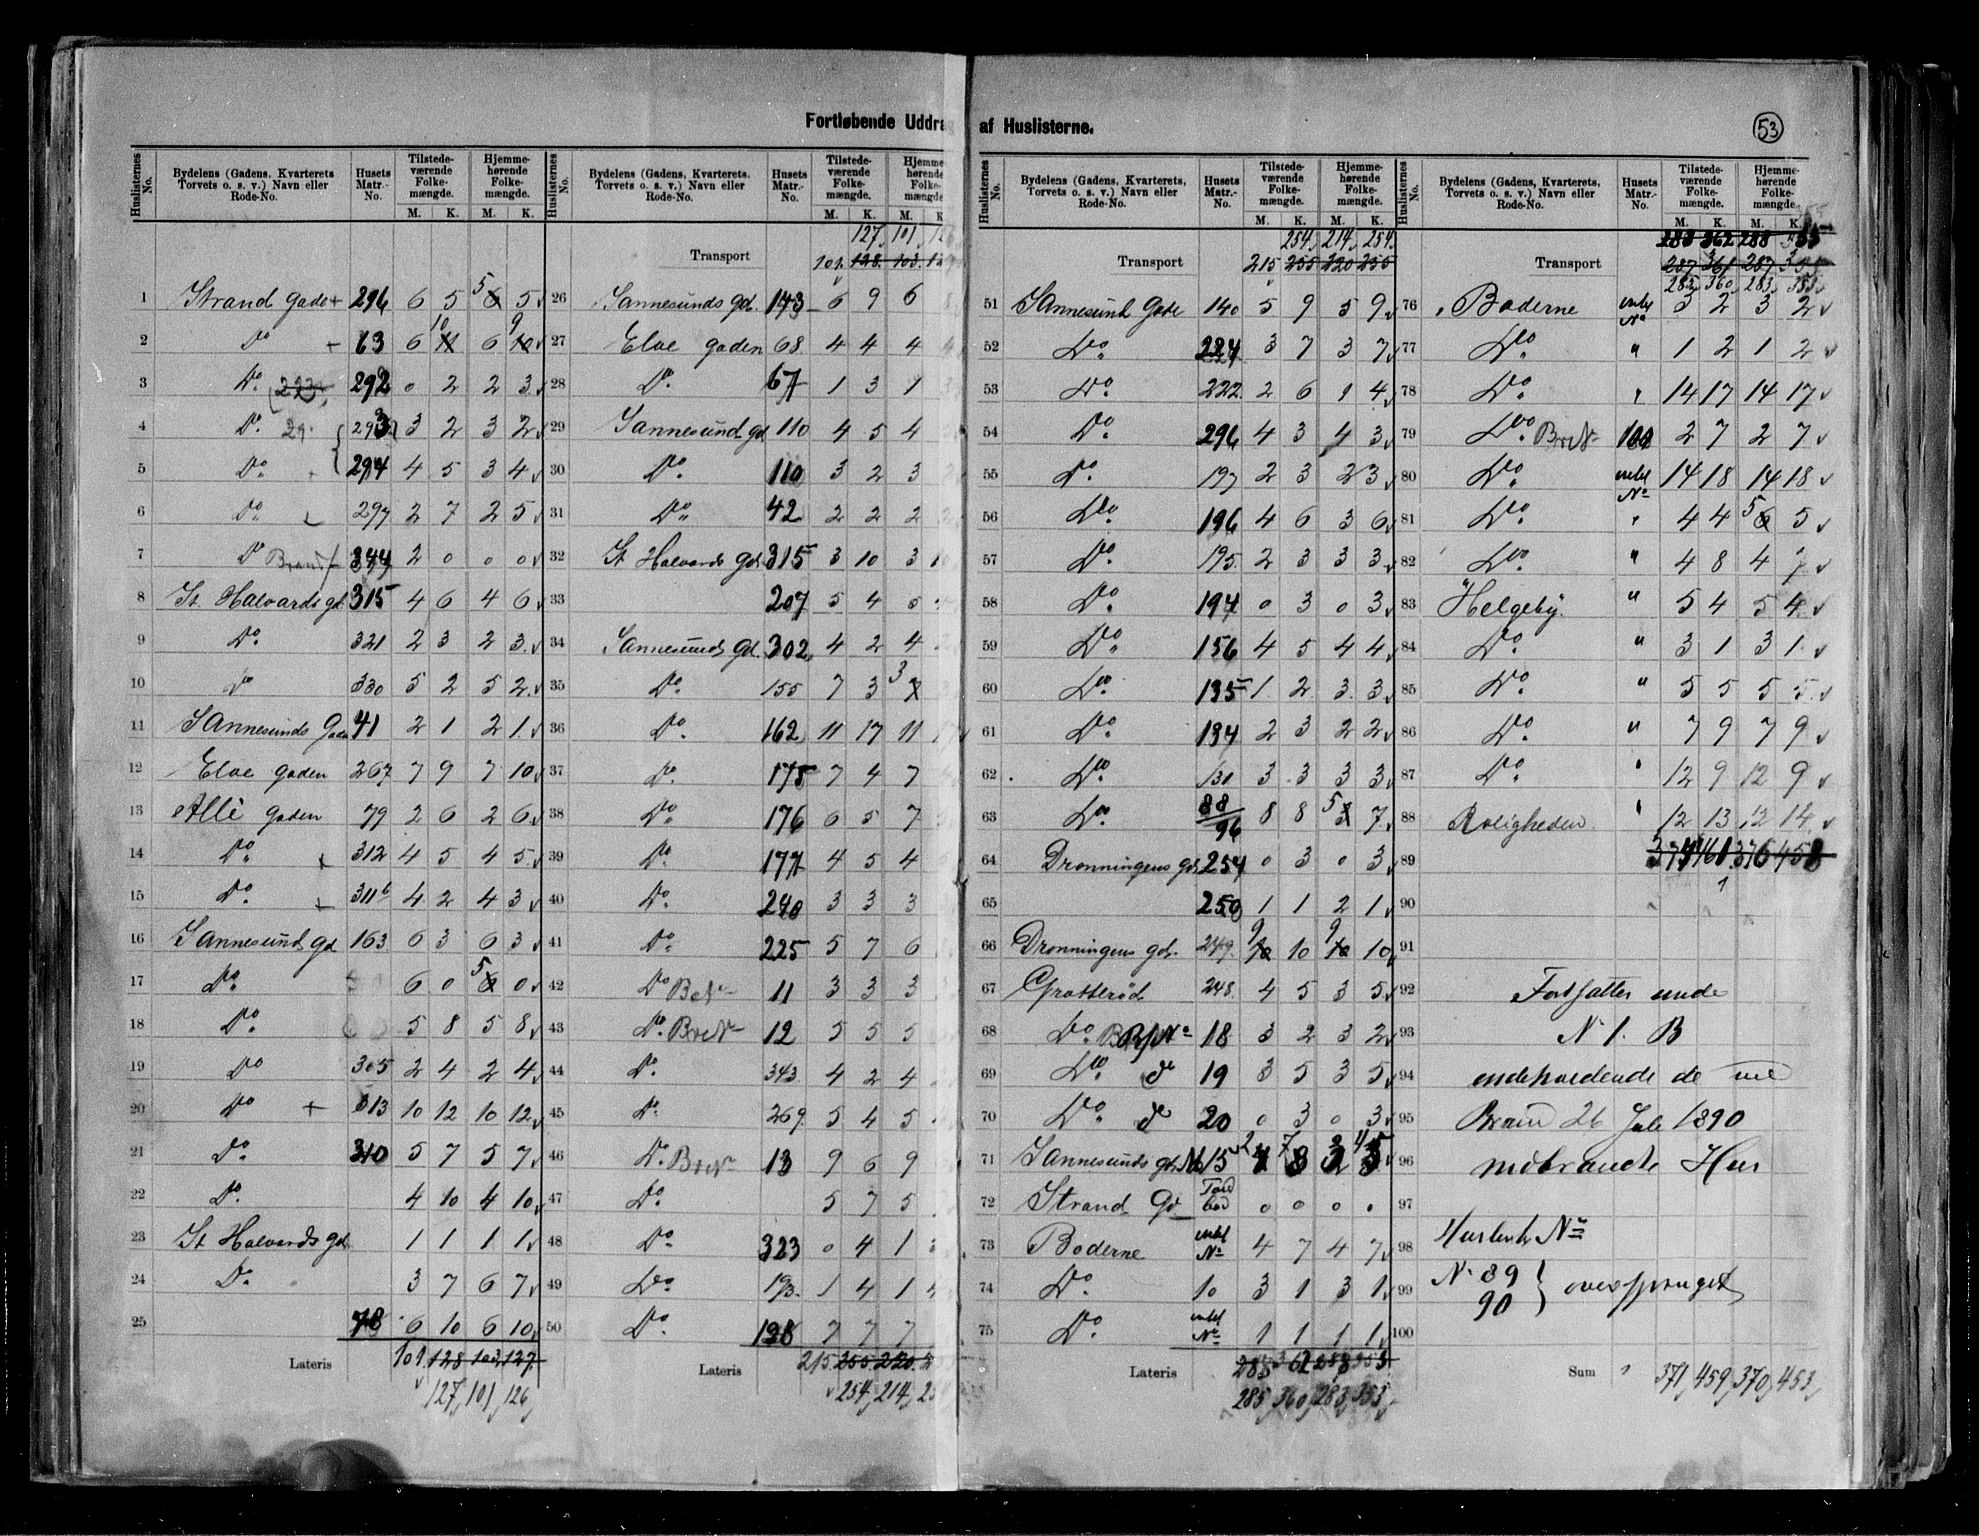 Fortløbende Uddra af Huslisterne.
53
Huslisternes No. | Bydelens (Gadens, Kvarterets, Torvets o. s. v.) Navn eller Rode-No. | Husets Matr.-No. | Tilstedeværende Folkemængde. M. K. | Hjemmehørende Folkemængde. M. K.
1 Strand Gade + 296 6 5 5 6 5
2 Do + 63 6 10 11 6 9 10
3 Do. 293 292 0 2 2 3
4 Do. 29 293 3 2 3 2
5 Do 294 4 5 3 4
6 Do. 297 2 7 2 5
7 Do 344 2 0 0 0
8 St. Halvards gd. 315 4 6 4 6
9 Do. 321 2 3 2 3
10 Do 330 5 2 5 2
11 Sannesunds Gade 41 2 1 2 1
12 Elve gaden 267 7 9 7 10
13 Allé gaden 79 2 6 2 6
14 Do. + 312 4 5 4 5
15 Do. 311b 4 2 4 3
16 Sannesund gd 163 6 3 6 3
17 Do. 6 0 5 6 0
18 Do. 5 8 5 8
19 Do 305 2 4 2 4
20 Do + 313 10 12 10 12
21 Do. 310 5 7 5 7
22 Do. 4 10 4 10
23 St Halvards gd. 1 1 1 1
24 Do. 3 7 6 7
25 78 6 10 6 10
Lateris 101 128 103 127
127 101 126
Huslisternes No. | Bydelens (Gadens, Kvarterets. Torvets o. s. v.) Navn eller Rode-No. | Husets Matr.-No. | Tilstedeværende Folkemængde. M. K. | Hjemme hørende Folke mængde M. K
127 101
Transport 101 128 103
26 Sannesunds gd. 143 6 9 6
27 Elve gaden 68 4 4 4
28 Do. 67 1 3 1
29 Sannesund gd 110 4 5 4
30 Do. 110 3 2 3
31 Do. 42 2 2 2
32 St Halvards gd. 315 3 10 3 10
33 207 5 4
34 Sannesunds gd. 302 4 2 4
35 Do. 155 7 3 3
36 Do. 162 11 17 11
37 Do. 175 7 4 7
38 Do. 176 6 5 7
39 Do. 177 4 5 4
40 Do. 240 3 3 3
41 Do. 225 5 7 6
42 Do 11 3 3 3
43 Do. 12 5 5 5
44 Do. 343 4 2 4
45 Do. 269 5 4 5
46 Do. 13 9 6 9
47 Do. 5 7 5
48 Do. 323 0 4 1
49 Do 193 1 4 1 4
50 Do. 198 7 7 7
Lateris 215 255 220
254 214
Huslisternes No. | Bydelens (Gadens, Kvarterets, Torvets o. s. v.) Navn eller Rode-No. | Husets Matr.-No. | Tilstedeværende Folkemængde. M. K. | Hjemmehørende Folkemængde. M. K.
254 214 254
Transport 215 255 220 255
51 Sannesund Gade 140 5 9 5 9
52 Do. 224 3 7 3 7
53 Do. 222 2 6 1 4
54 Do. 296 4 3 4 3
55 Do. 197 2 3 2 3
56 Do. 196 4 6 3 6
57 Do. 195 2 3 3 3
58 Do. 194 0 3 0 3
59 Do. 156 4 5 4 4
60 Do. 135 1 2 3 3
61 Do. 134 2 3 2 2
62 Do. 131 3 3 3 3
63 Do. 88/96 8 8 5 7
64 Dronningens gd. 254 0 3 0 3
65 250 1 1 2 1
66 Dronningens gd. 249 9 10 10 9 10 10
67 Grotterød 248 4 5 3 5
68 Do 18 3 2 3 2
69 Do. do 19 3 5 3 5
70 Do. do 20 0 3 0 3
71 Sannesunds gd. No 15 2 7 8 3 4 5
72 Strand Gd 0 0 0 0
73 Boderne uden No 4 7 4 7
74 Do. 10 3 1 3 1
75 Do. uden No 1 1 1 1
Lateris 288 362 288 353
285 360 283 353
Huslisternes No. | Bydelens (Gadens, Kvarterets, Torvets o. s. v.) Navn eller Rode-No. | Husets Matr.-No. | Tilstedeværende Folkemængde. M. K. | Hjemmehørende Folkemængde M. K.
283 362 288
Transport 287 361 287
283 360 283 353
76 Boderne uden No 3 2 3 2
77 Do. " 1 2 1 2
78 Do. " 14 17 14 17
79 Do. 100 2 7 2 7
80 Do. uden No 14 18 14 18
81 Do. " 4 4 5 6 5
82 Do. " 4 8 4 7
83 Helgeby. " 5 4 5 4
84 Do. " 3 1 3 1
85 Do. " 5 5 5 5
86 Do. " 7 9 7 9
87 Do. " 12 9 12 9
88 Roligheden " 12 13 12 14
89 374 461 376 458
90
91
92 Fortsættes unde
93 N 1. B
94 indeholdende de ve
95 Brand 26 Juli 1890
96 nedbrændte Hus
97
98 Huslister No
99 N. 89 90 } oversprunget
100
Sum 371 459 370 453